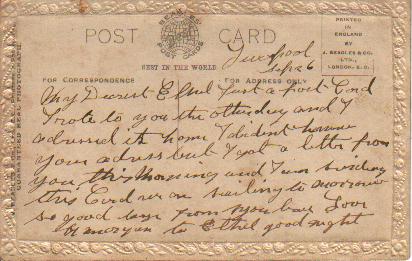 POST CARD
BEAGLES' POSTCARDS
BEST IN THE WORLD
PRINTED
IN
ENGLAND
BY
J. BEAGLES & CO.
LTD.,
LONDON. E.C.
GUARANTEED REAL PHOTOGRAPH
FOR CORRESPONDENCE
FOR ADDRESS ONLY
Liverpool
My Dearest Ethel Just a post Card
I rote to you the other day and I
adressd it home I dident know
your adress but I got a letter from
you this Morning and I am sending
this Card we are sailing to morrow
so good bye from your
H morgan to Ethel good night